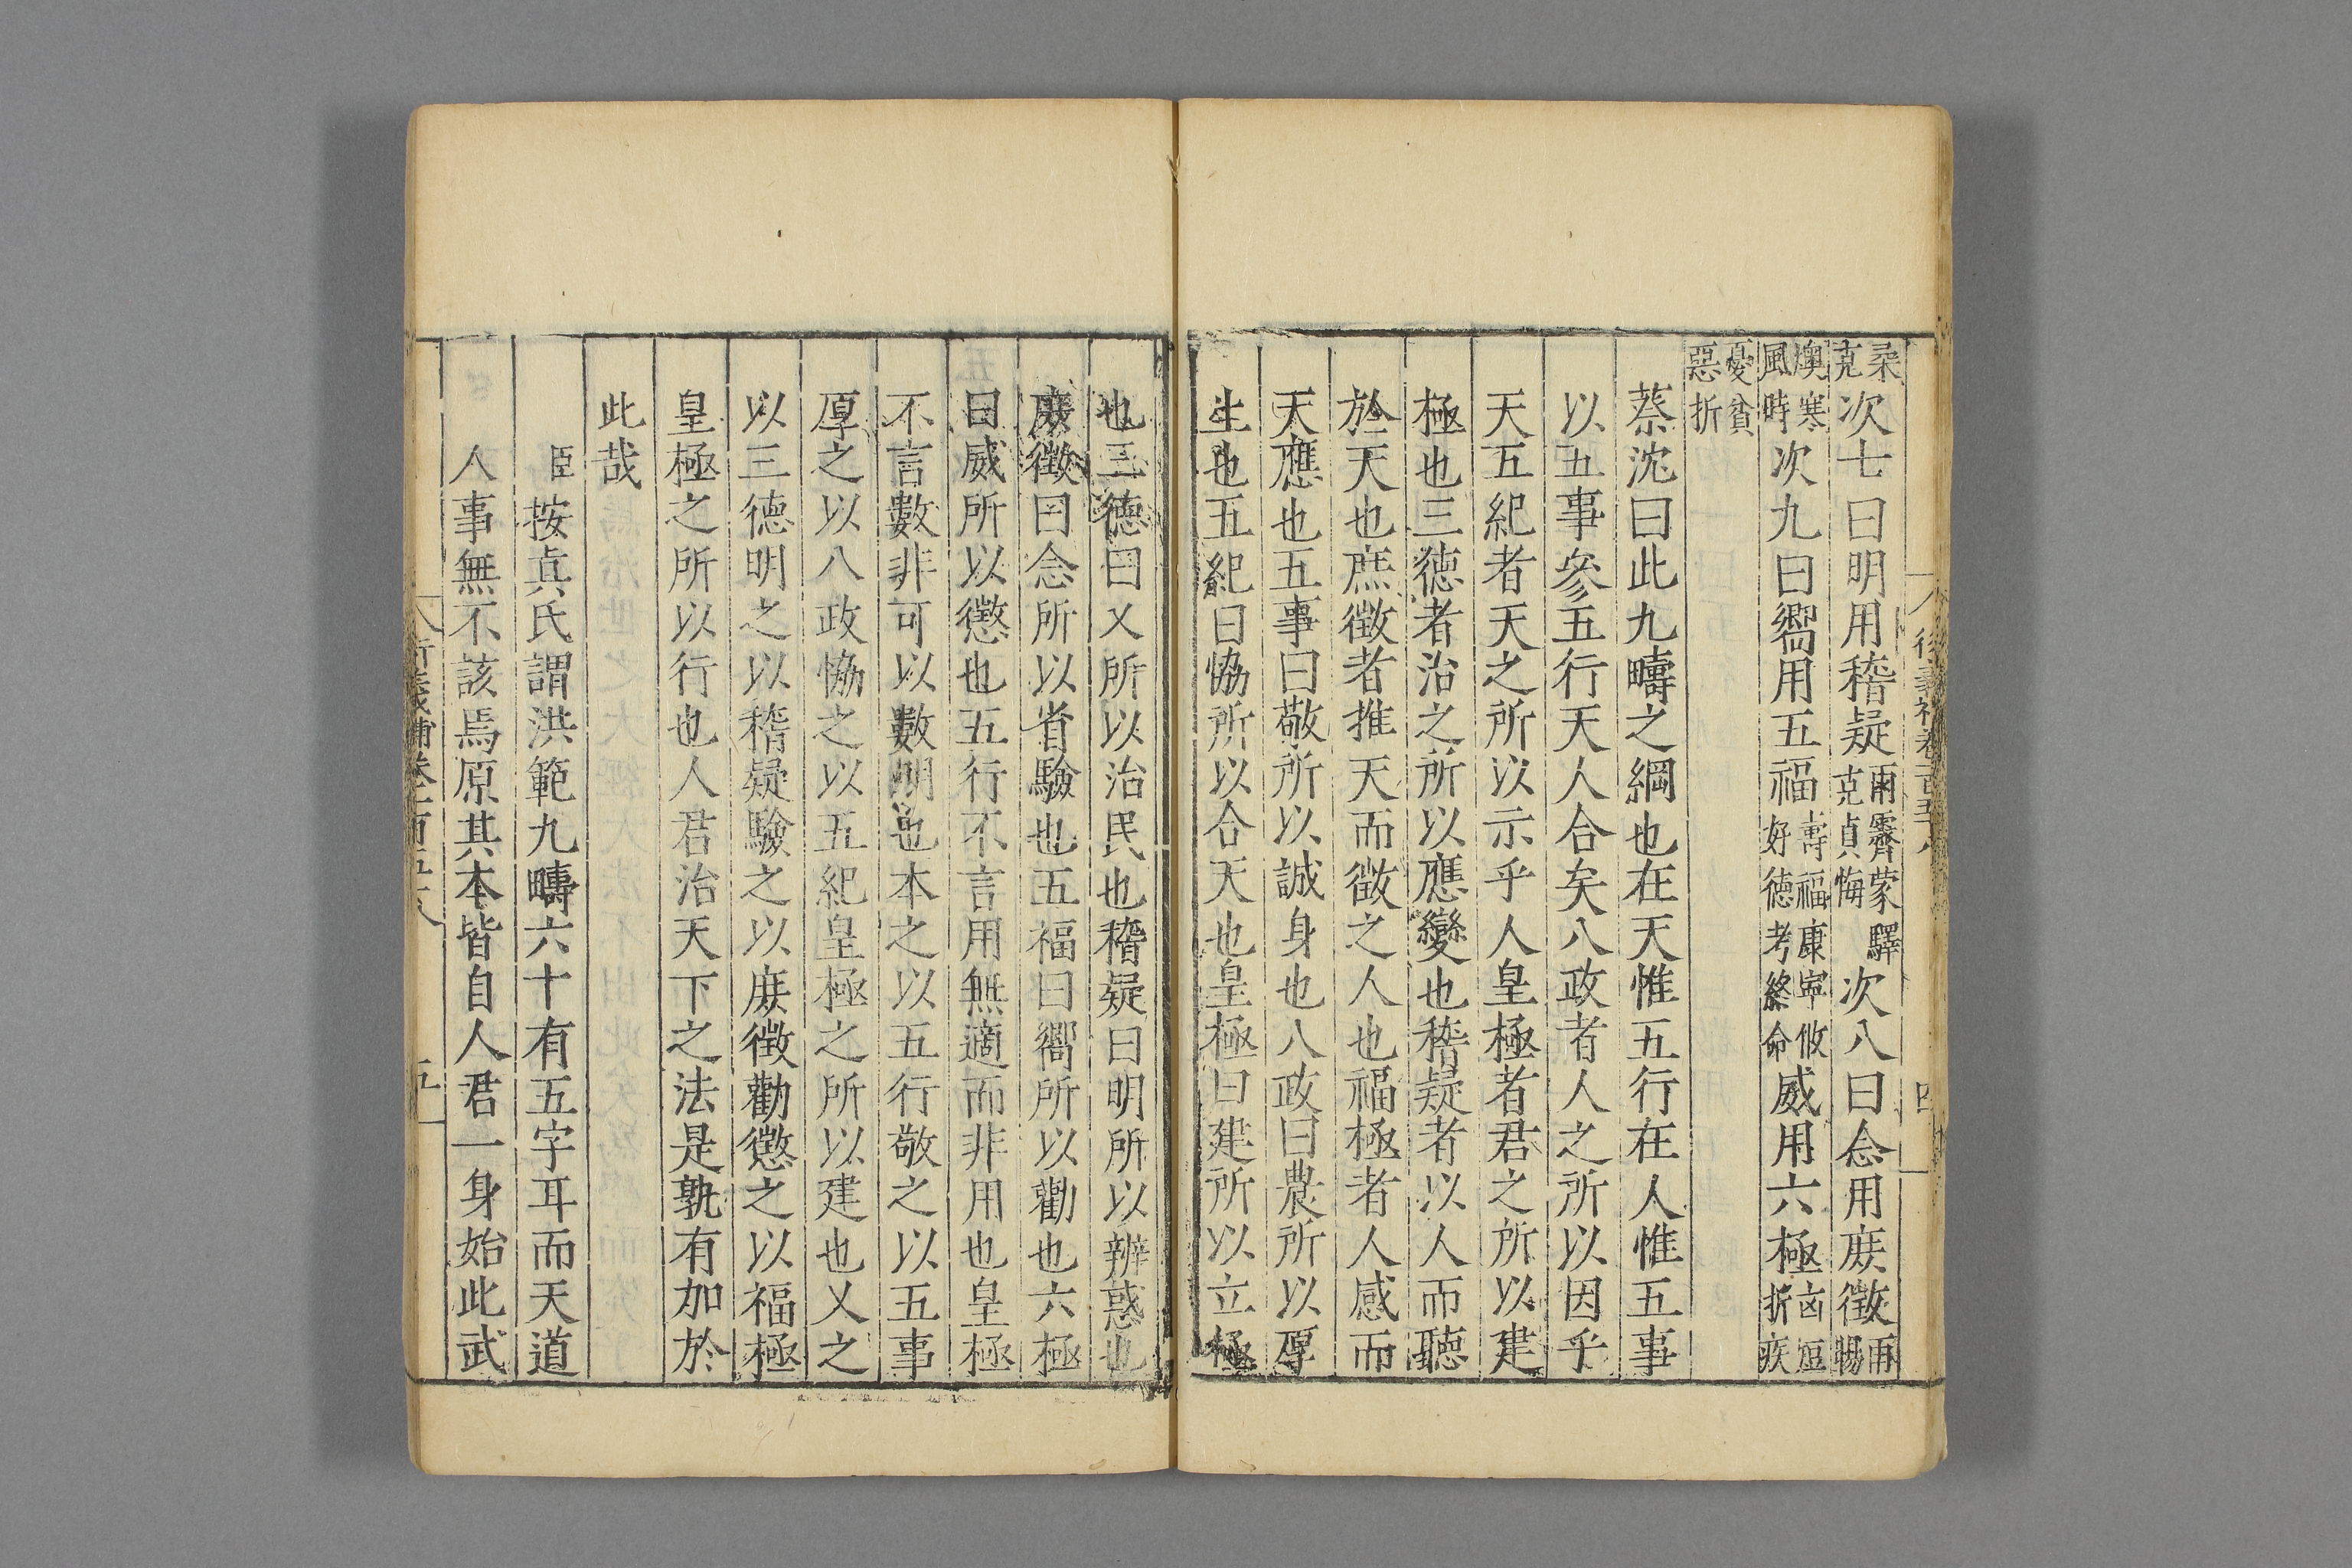 柔克次七曰明用稽疑雨霽蒙驛克貞悔次八曰念用庶徵雨暘
燠寒風時次九曰嚮用五福壽福康寧攸好德考終命威用六極凶短折疾
憂貧惡折
蔡沈曰此九疇之綱也在天惟五行在人惟五事
以五事參五行天人合矣八政者人之所以因乎
天五紀者天之所以示乎人皇極者君之所以建
極也三德者治之所以應變也稽疑者以人而聽
於天也庶徵者推天而徵之人也福極者人感而
天應也五事曰敬所以誠身也八政曰農所以厚
生也五紀曰恊所以合天也皇極曰建所以立極
也三德曰乂所以治民也稽疑曰明所以辨惑也
庶徵曰念所以省驗也五福曰嚮所以勸也六極
曰威所以懲也五行不言用無適而非用也皇極
不言數非可以數明也本之以五行敬之以五事
厚之以八政恊之以五紀皇極之所以建也乂之
以三德明之以稽疑驗之以庶徵勸懲之以福極
皇極之所以行也人君治天下之法是孰有加於
此哉
臣按真氏謂洪範九疇六十有五字耳而天道
人事無不該焉原其本皆自人君一身始此武